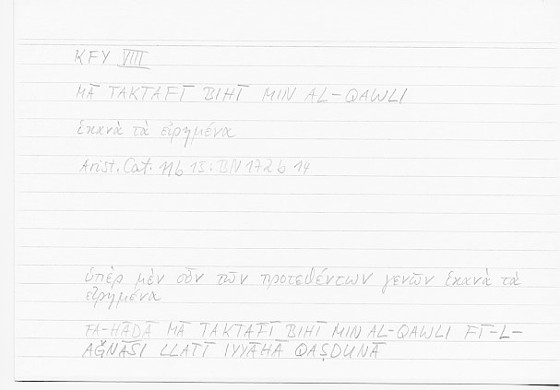 KFY VIII
MĀ TAKTAFĪ BIHĪ MIN AL-QAWLI
ἱκανὰ τὰ εἰρημένα
Arist. Cat. 11b 15: BN 172b 14
ὑπὲρ μὲν οὖν τῶν προτεθέντων γενῶν ἱκανὰ τὰ
εἰρημένα
FA-HĀḎĀ MĀ TAKTAFĪ BIHĪ MIN AL-QAWLI FĪ-L-
AǦNĀSI LLATĪ IYYĀHĀ QAṢDUNĀ